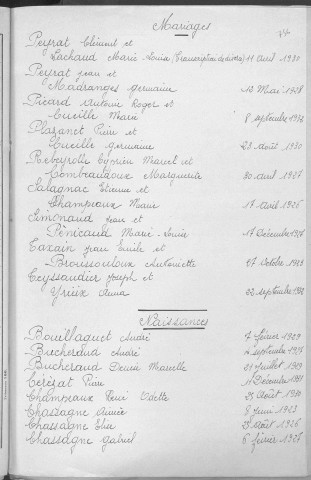 Mariages
Peyrat Clément et
Lachaud Marie Louise (Transcription de divorce) 11 avril 1930
Peyrat Jean et
Madranges Germaine 12 Mai 1928
Picard Antoine Roger et
Cueille Marie 8 septembre
Plazanet Pierre et
Cueille Germaine 23 août 1930
Rebeyrolle Cyprien Marcel et
Combraudoux Marguerite 30 avril 1927
Salagnac Etienne et
Champeaux Marie 17 avril 1926
Simonaud Jean et
Pénicaud Marie Louise 17 Décembre
Taxain Jean Emile et
Broussouloux Antoinette 27 Octobre
Teyssandier Joseph et
Yrieix Anna 22 septembre
Naissances
Bouillaguet André 7 février 1929
Bucheraud André 2 septembre
Bucheraud Denise Marcelle 21 juillet 1929
Cérézat Pierre 11 Décembre
Champeaux René Odette 25 Août 1930
Chassagne Aimée 8 Juin 1923
Chassagne Elise 28 août 1926
Chassagne Gabriel 6 février 1928